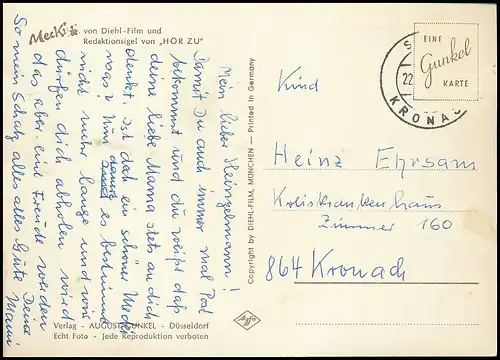 Mecki
von Diehl-Film und
Redaktionsigel von „HÖR ZU"
Mein lieber Heinzelmann!
Damit Du auch immer mal Post
bekommst und du weißt daß
deine liebe Mama stets an dich
denkt. ist das ein schöner Mecki
was? Nun dauert es bestimmt
nicht mehr lange und wir
dürfen dich abholen wird
das aber eine Freude werden
So mein Schatz alles alles Gute
Deine
Mami
Verlag - AUGUST GUNKEL - Düsseldorf
Echt Foto - Jede Reproduktion verboten
Copyright by DIEHL-FILM, MÜNCHEN — Printed in Germany
EINE
Gunkel
KARTE
22
KRONAC
Kind
Heinz Ehrsam
Kreiskrankenhaus
Zimmer 160
864 Kronach
Agfa